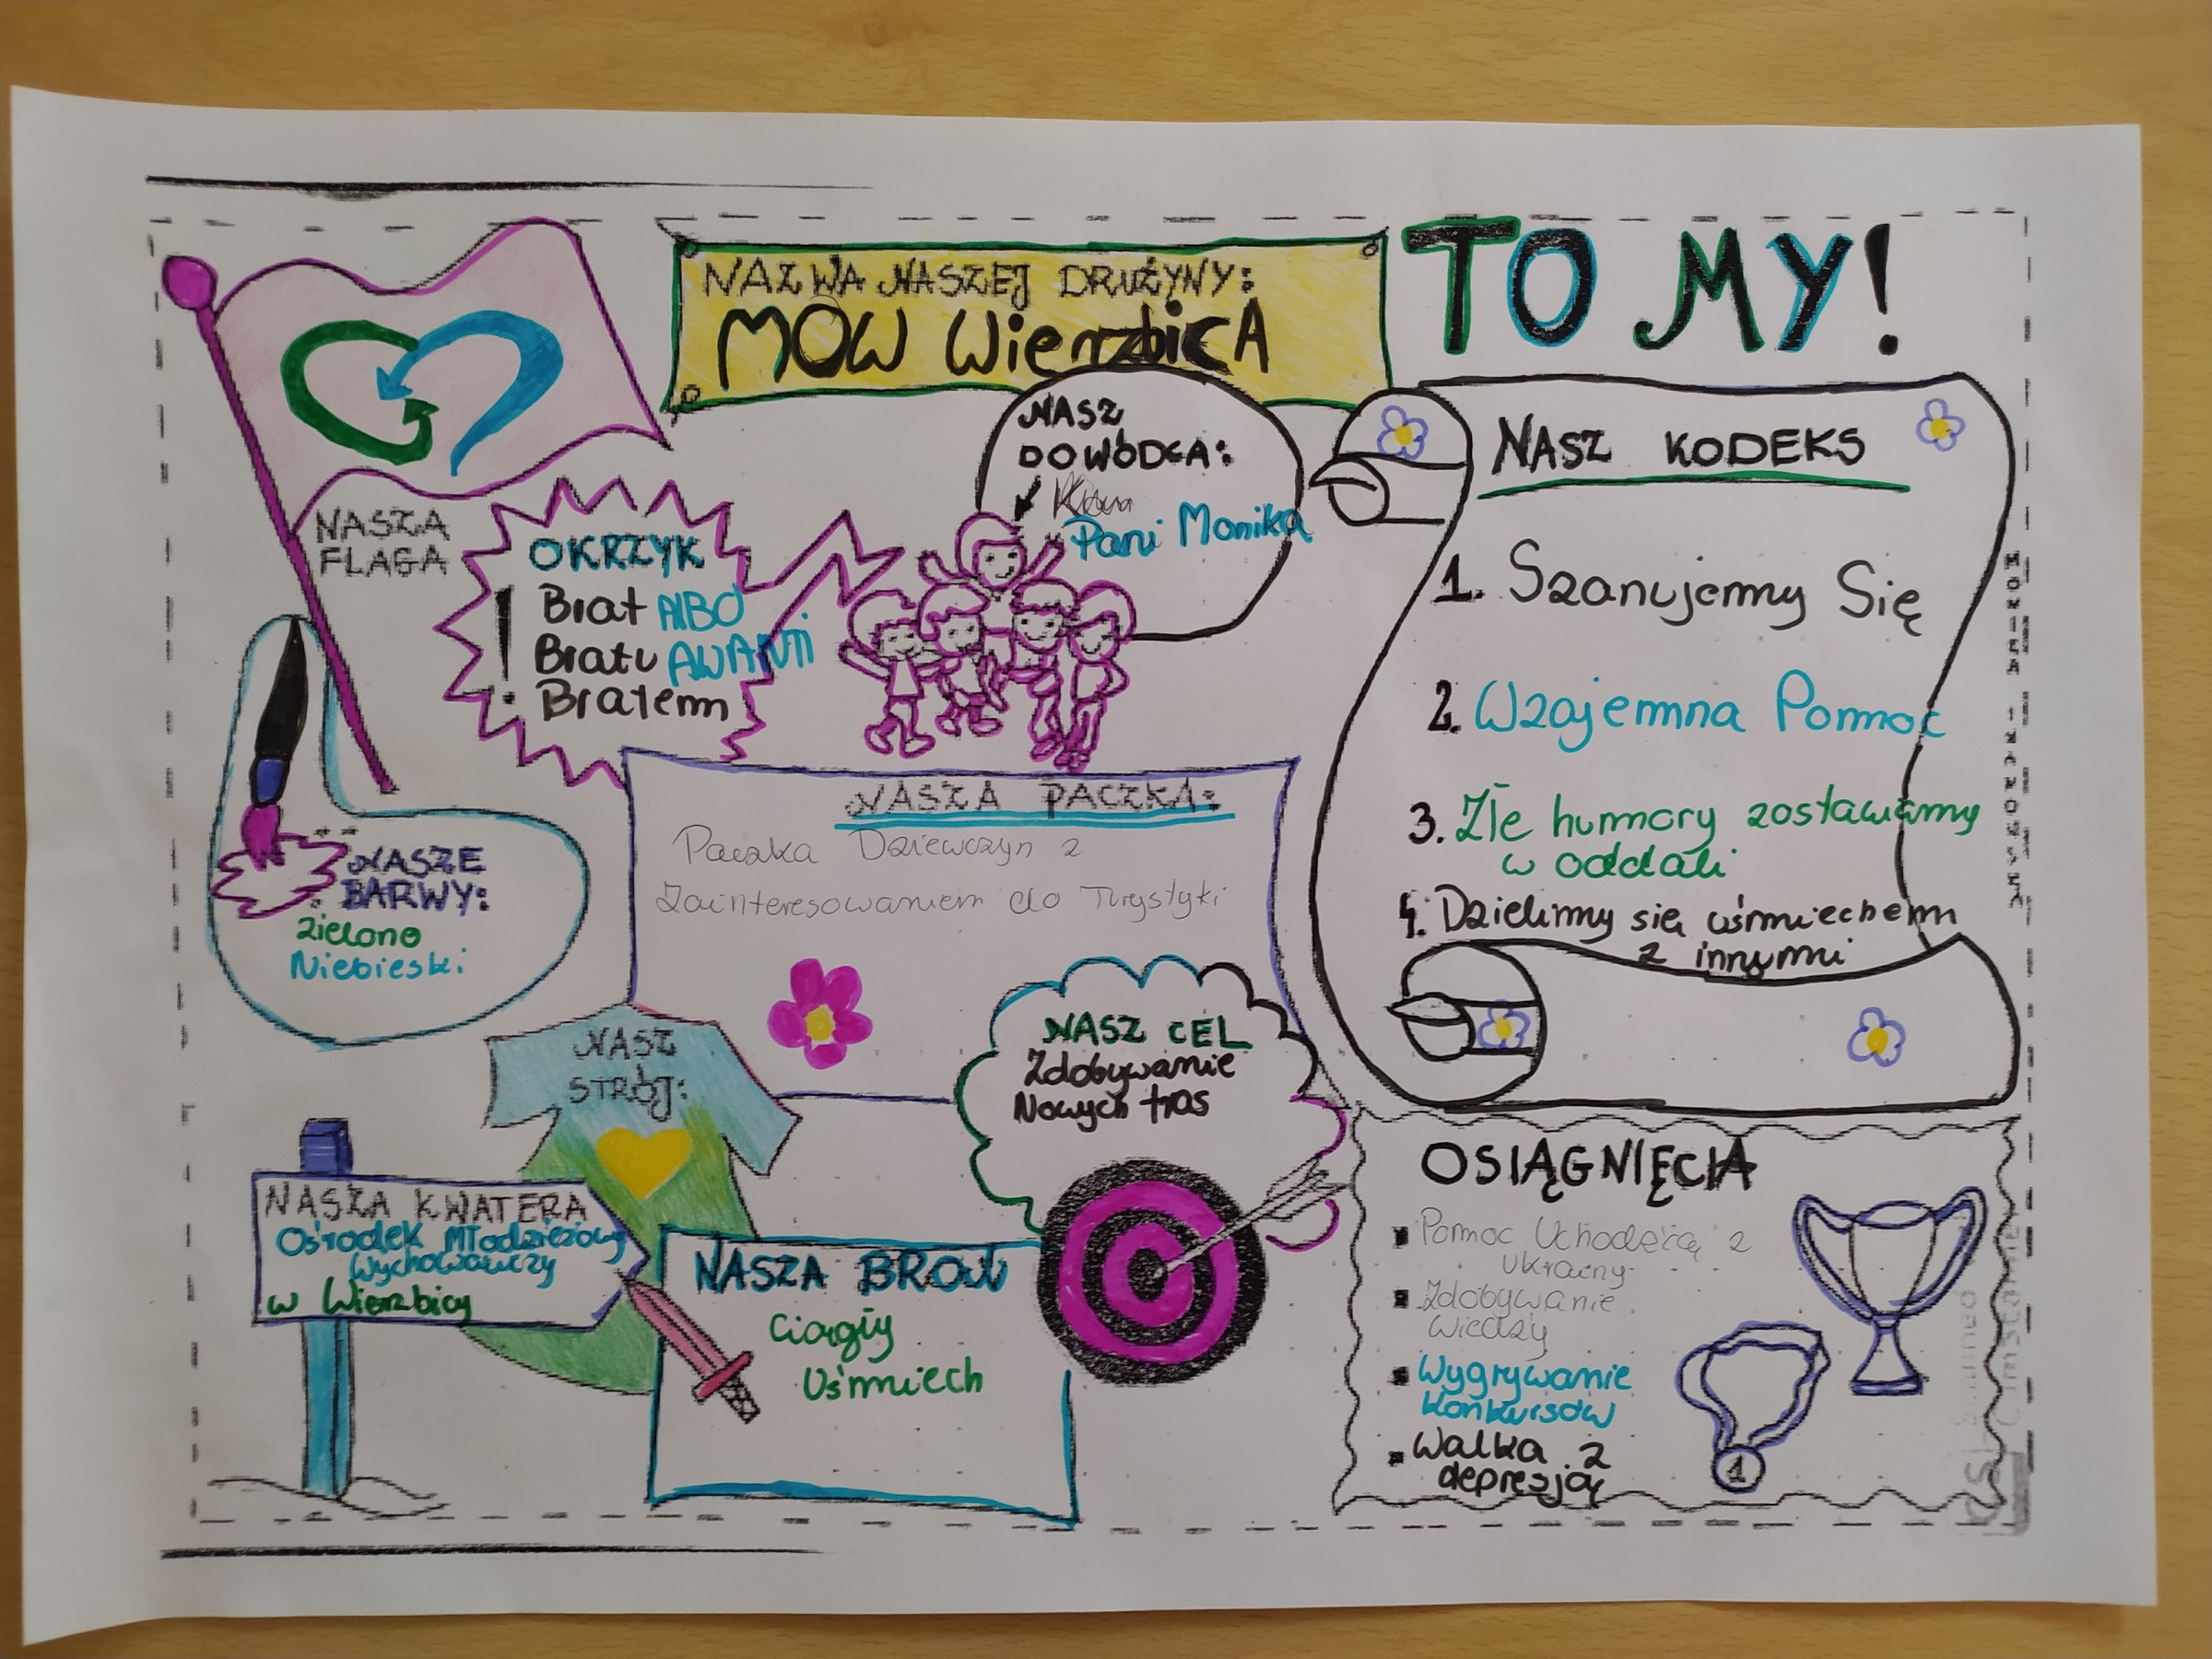 NAZWA NASZEJ DRUŻYNY:
MOW WierzbicA
TO MY!
NASZ
DOWÓDCA:
Pani Monika
NASZA
FLAGA
OKRZYK
Brat AlBO
Bratu AWANTI
Bratem
!
NASZ KODEKS
1. Szanujemy Się
2. Wzajemna Pomoc
3. Złe humory zostawiamy
w oddali
4. Dzielimy się uśmiechem
z innymi
NASZE
BARWY:
zielono
Niebieski
NASZA PACZKA:
Paczka Dziewczyn z
Zainteresowaniem do Turystyki
NASZ
STRÓJ:
NASZ CEL
Zdobywanie
Nowych tras
NASZA KWATERA
Ośrodek Młodzieżowy
Wychowawczy
w Wierzbicy
NASZA BROŃ
Ciągły
Uśmiech
OSIĄGNIĘCIA
Pomoc Uchodźcą z
Ukrainy
Zdobywanie
wiedzy
Wygrywanie
konkursów
Walka z
depresją
1
MONIKA